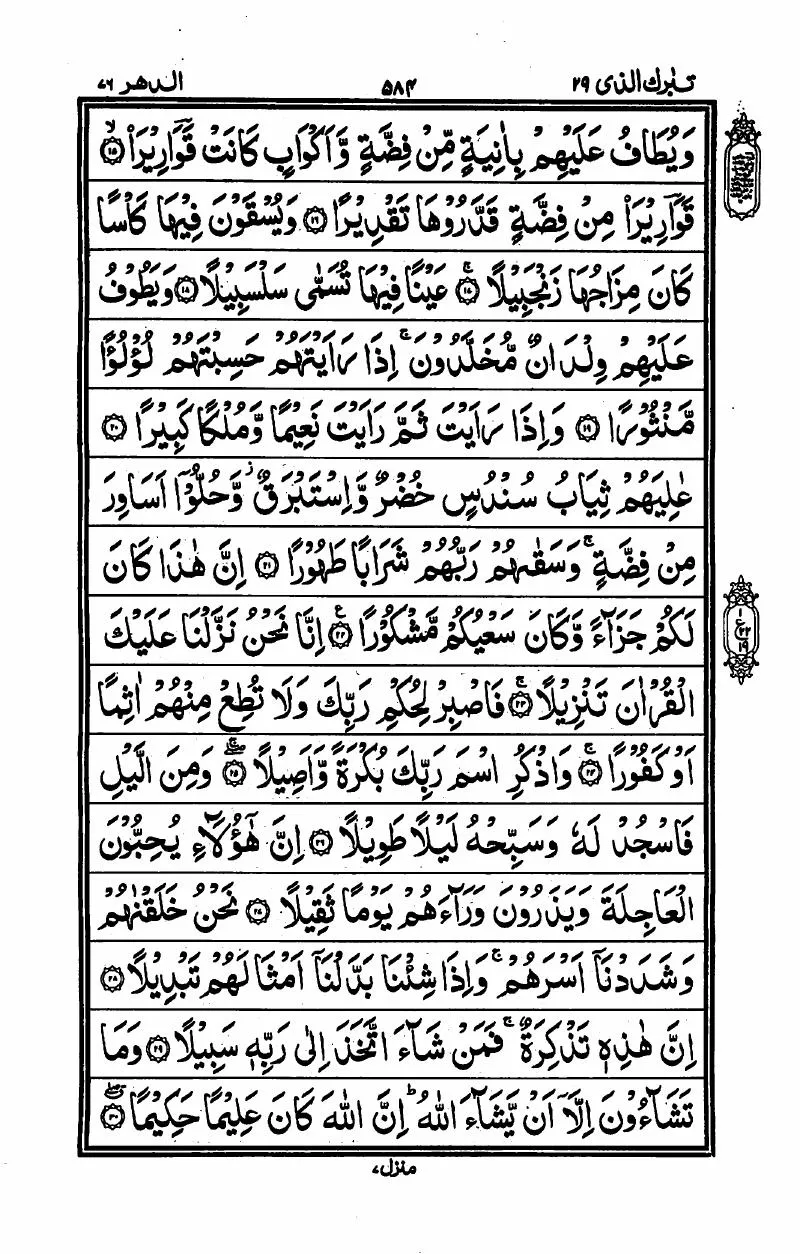 تبٰرك الذی ۲۹
۵۸۴
الدهر ۷۶
وَيُطَافُ عَلَيْهِمْ بِاٰنِيَةٍ مِّنْ فِضَّةٍ وَّاَكْوَابٍ كَانَتْ قَوَّارِيْرَا۟ ۙ﴿۱۵﴾
قَوَّارِيْرَا۟ مِنْ فِضَّةٍ قَدَّرُوْهَا تَقْدِيْرًا ﴿۱۶﴾ وَيُسْقَوْنَ فِيْهَا كَاْسًا
كَانَ مِزَاجُهَا زَنْجَبِيْلًا ۚ﴿۱۷﴾ عَيْنًا فِيْهَا تُسَمّٰى سَلْسَبِيْلًا ﴿۱۸﴾ وَيَطُوْفُ
عَلَيْهِمْ وِلْدَانٌ مُّخَلَّدُوْنَ ۚ اِذَا رَاَيْتَهُمْ حَسِبْتَهُمْ لُؤْلُؤًا
مَّنْثُوْرًا ﴿۱۹﴾ وَاِذَا رَاَيْتَ ثَمَّ رَاَيْتَ نَعِيْمًا وَّمُلْكًا كَبِيْرًا ﴿۲۰﴾
عٰلِيَهُمْ ثِيَابُ سُنْدُسٍ خُضْرٌ وَّاِسْتَبْرَقٌ ؗ وَّحُلُّوْۤا اَسَاوِرَ
مِنْ فِضَّةٍ ۚ وَسَقٰىهُمْ رَبُّهُمْ شَرَابًا طَهُوْرًا ﴿۲۱﴾ اِنَّ هٰذَا كَانَ
لَكُمْ جَزَآءً وَّكَانَ سَعْيُكُمْ مَّشْكُوْرًا ﴿۲۲﴾ ع اِنَّا نَحْنُ نَزَّلْنَا عَلَيْكَ
الْقُرْاٰنَ تَنْزِيْلًا ۚ﴿۲۳﴾ فَاصْبِرْ لِحُكْمِ رَبِّكَ وَلَا تُطِعْ مِنْهُمْ اٰثِمًا
اَوْ كَفُوْرًا ۚ﴿۲۴﴾ وَاذْكُرِ اسْمَ رَبِّكَ بُكْرَةً وَّاَصِيْلًا ۖۚ﴿۲۵﴾ وَمِنَ الَّيْلِ
فَاسْجُدْ لَهٗ وَسَبِّحْهُ لَيْلًا طَوِيْلًا ﴿۲۶﴾ اِنَّ هٰۤؤُلَآءِ يُحِبُّوْنَ
الْعَاجِلَةَ وَيَذَرُوْنَ وَرَآءَهُمْ يَوْمًا ثَقِيْلًا ﴿۲۷﴾ نَحْنُ خَلَقْنٰهُمْ
وَشَدَدْنَاۤ اَسْرَهُمْ ۚ وَاِذَا شِئْنَا بَدَّلْنَاۤ اَمْثَالَهُمْ تَبْدِيْلًا ﴿۲۸﴾
اِنَّ هٰذِهٖ تَذْكِرَةٌ ۚ فَمَنْ شَآءَ اتَّخَذَ اِلٰى رَبِّهٖ سَبِيْلًا ﴿۲۹﴾ وَمَا
تَشَآءُوْنَ اِلَّاۤ اَنْ يَّشَآءَ اللّٰهُ ؕ اِنَّ اللّٰهَ كَانَ عَلِيْمًا حَكِيْمًا ۖۗ﴿۳۰﴾
۱
ع
۲۲
۱۹
منزل۷